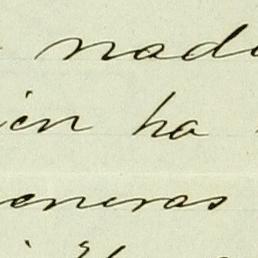 nad
ien ha
eneras